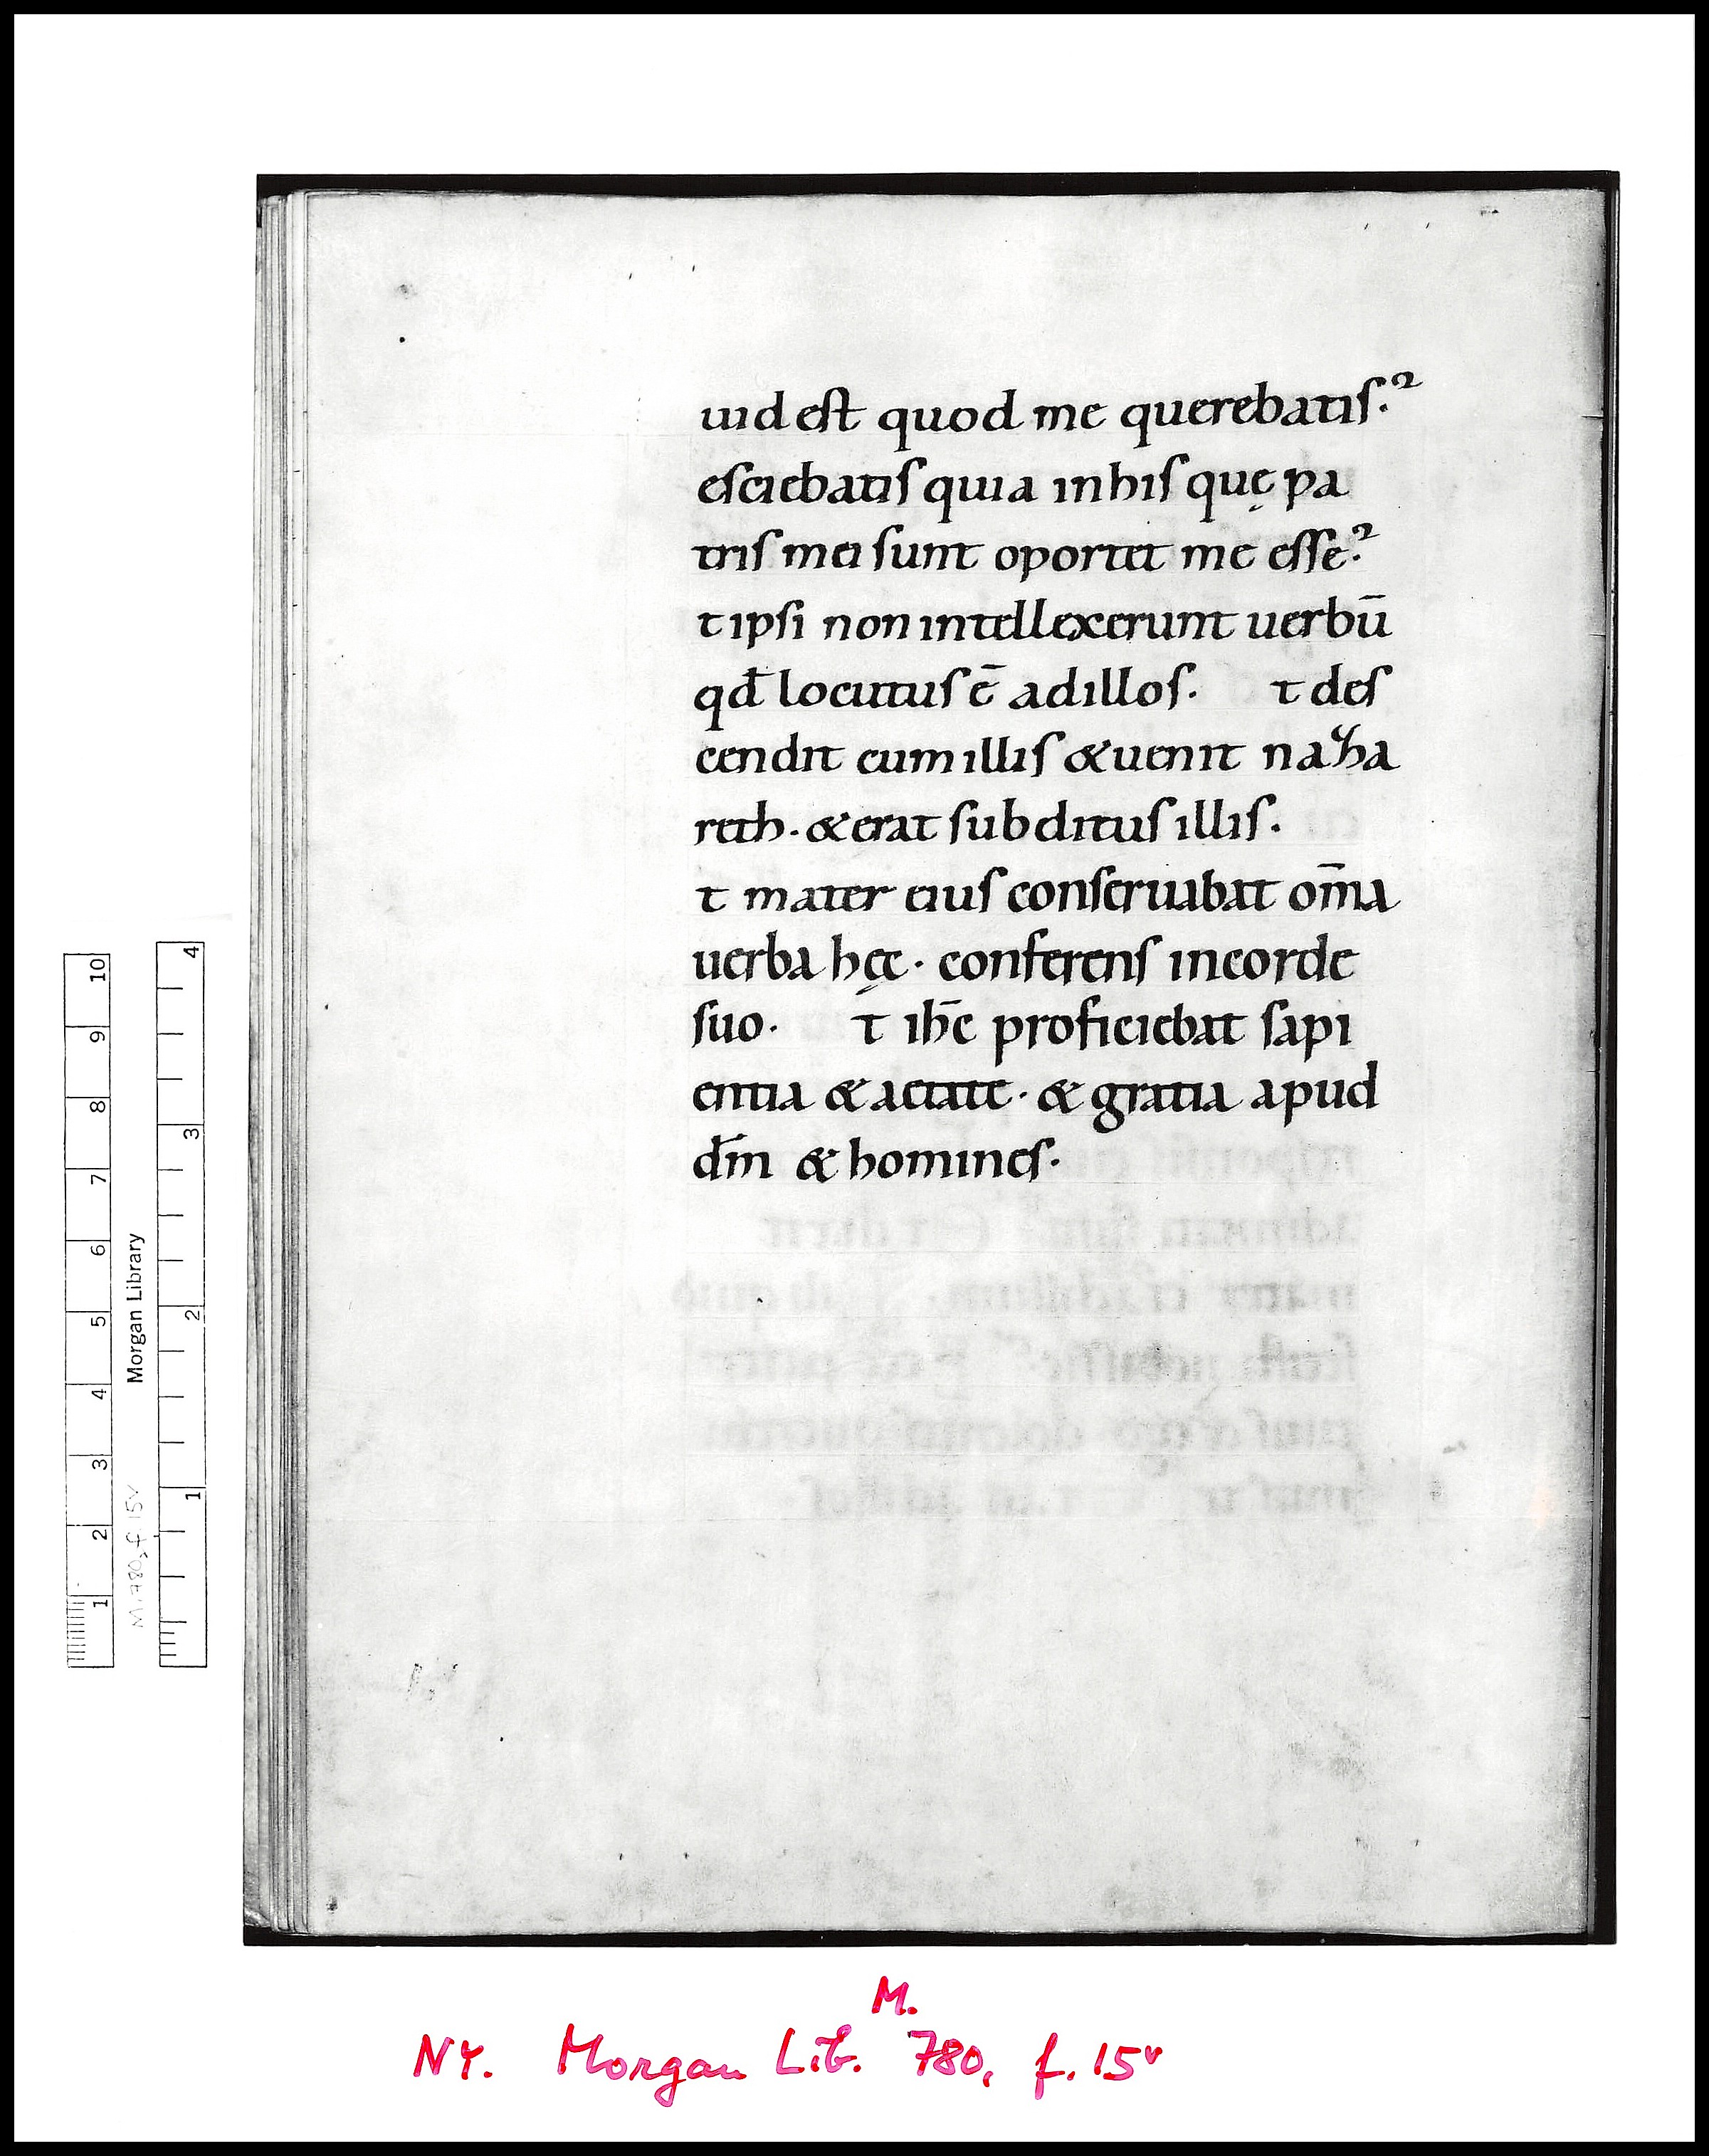 uid est quod me querebatis.?
esciebatis quia in his quę pa
tris mei sunt oportet me esse.?
t ipsi non intellexerunt uerbū
qđ locutus ē ad illos. t des
cendit cum illis & uenit naza
reth. & erat subditus illis.
t mater eius conseruabat om̄a
uerba hęc. conferens in corde
suo. t ih̄c proficiebat sapi
entia & aetate. & gratia apud
dm̄ & homines.
10 9 8 7 6 5 4 3 2 1
Morgan Library
M. 780, f 15v
4 3 2 1
M.
NY. Morgan Lib. 780, f. 15v